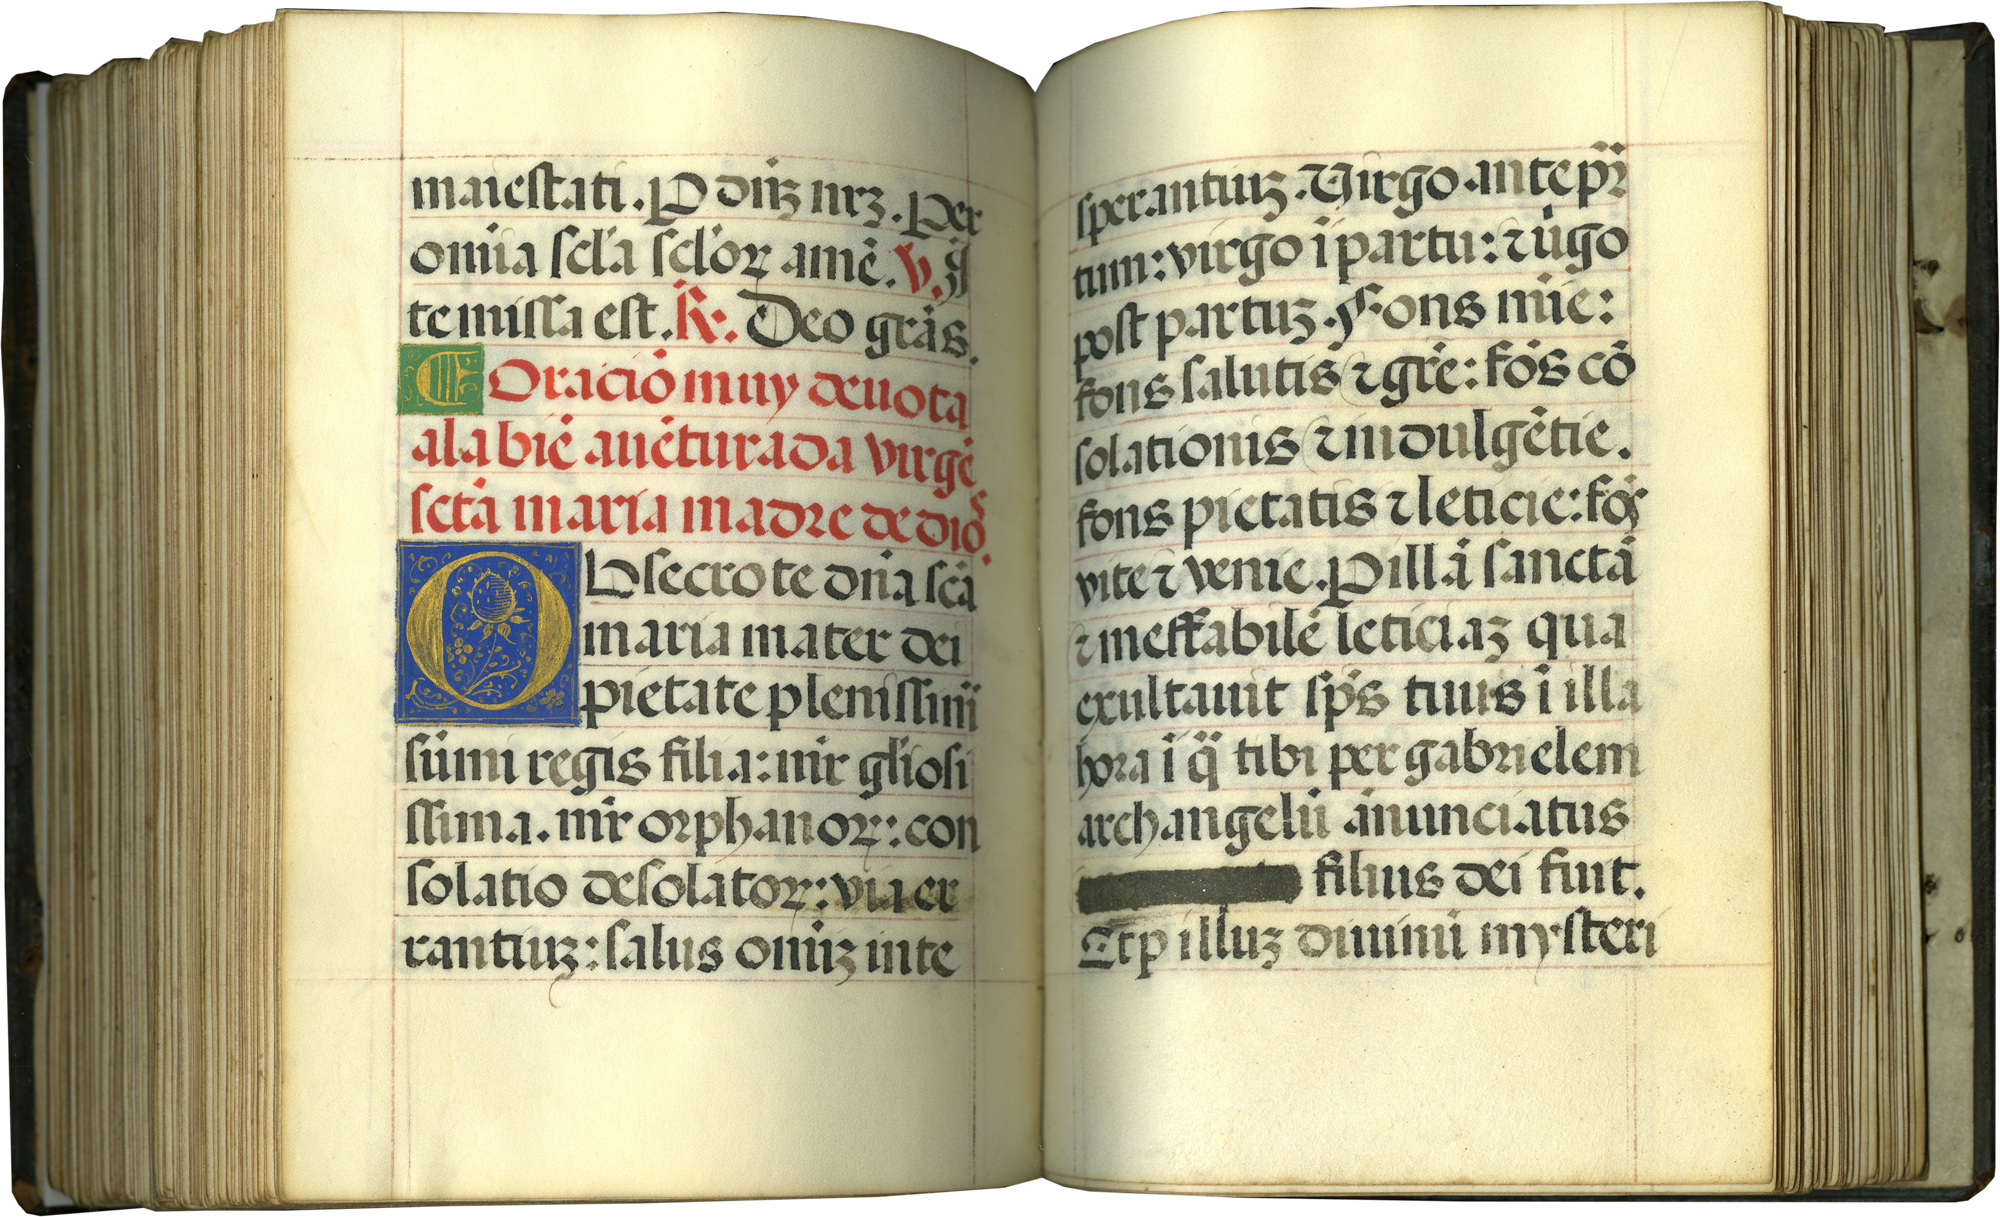 maiestati. P dn̄ȝ nrȝ. Per
om̄ia scl̄a scl̄oꝝ amē. V. I
te missa est. R. Deo grās.
Oració muy deuota
ala biē auēturada virgē
sctā maria madre de dios.
Obsecro te dn̄a scā
maria mater dei
pietate plenissim̄
sūmi regis filia: mr̄ gl̄iosi
ssima. mr̄ orphanoꝝ: con
solatio desolatoꝝ: via er
rantiuȝ: salus om̄iȝ in te
sperantiuȝ. Virgo ante pr̄
tum: virgo ī partu: ꝛ ūgo
post partuȝ. Fons mīe:
fons salutis ꝛ grē: fōs cō
solationis ꝛ indulgētie.
fons pietatis ꝛ leticie: fōs
vite ꝛ venie. P illā sanctā
ꝛ ineffabilē leticiaȝ qua
exultauit sp̄s tuus ī illa
hora ī q̄ tibi per gabrielem
archangelū ānunciatus
filius dei fuit.
Et p illuȝ diuinū mysteri